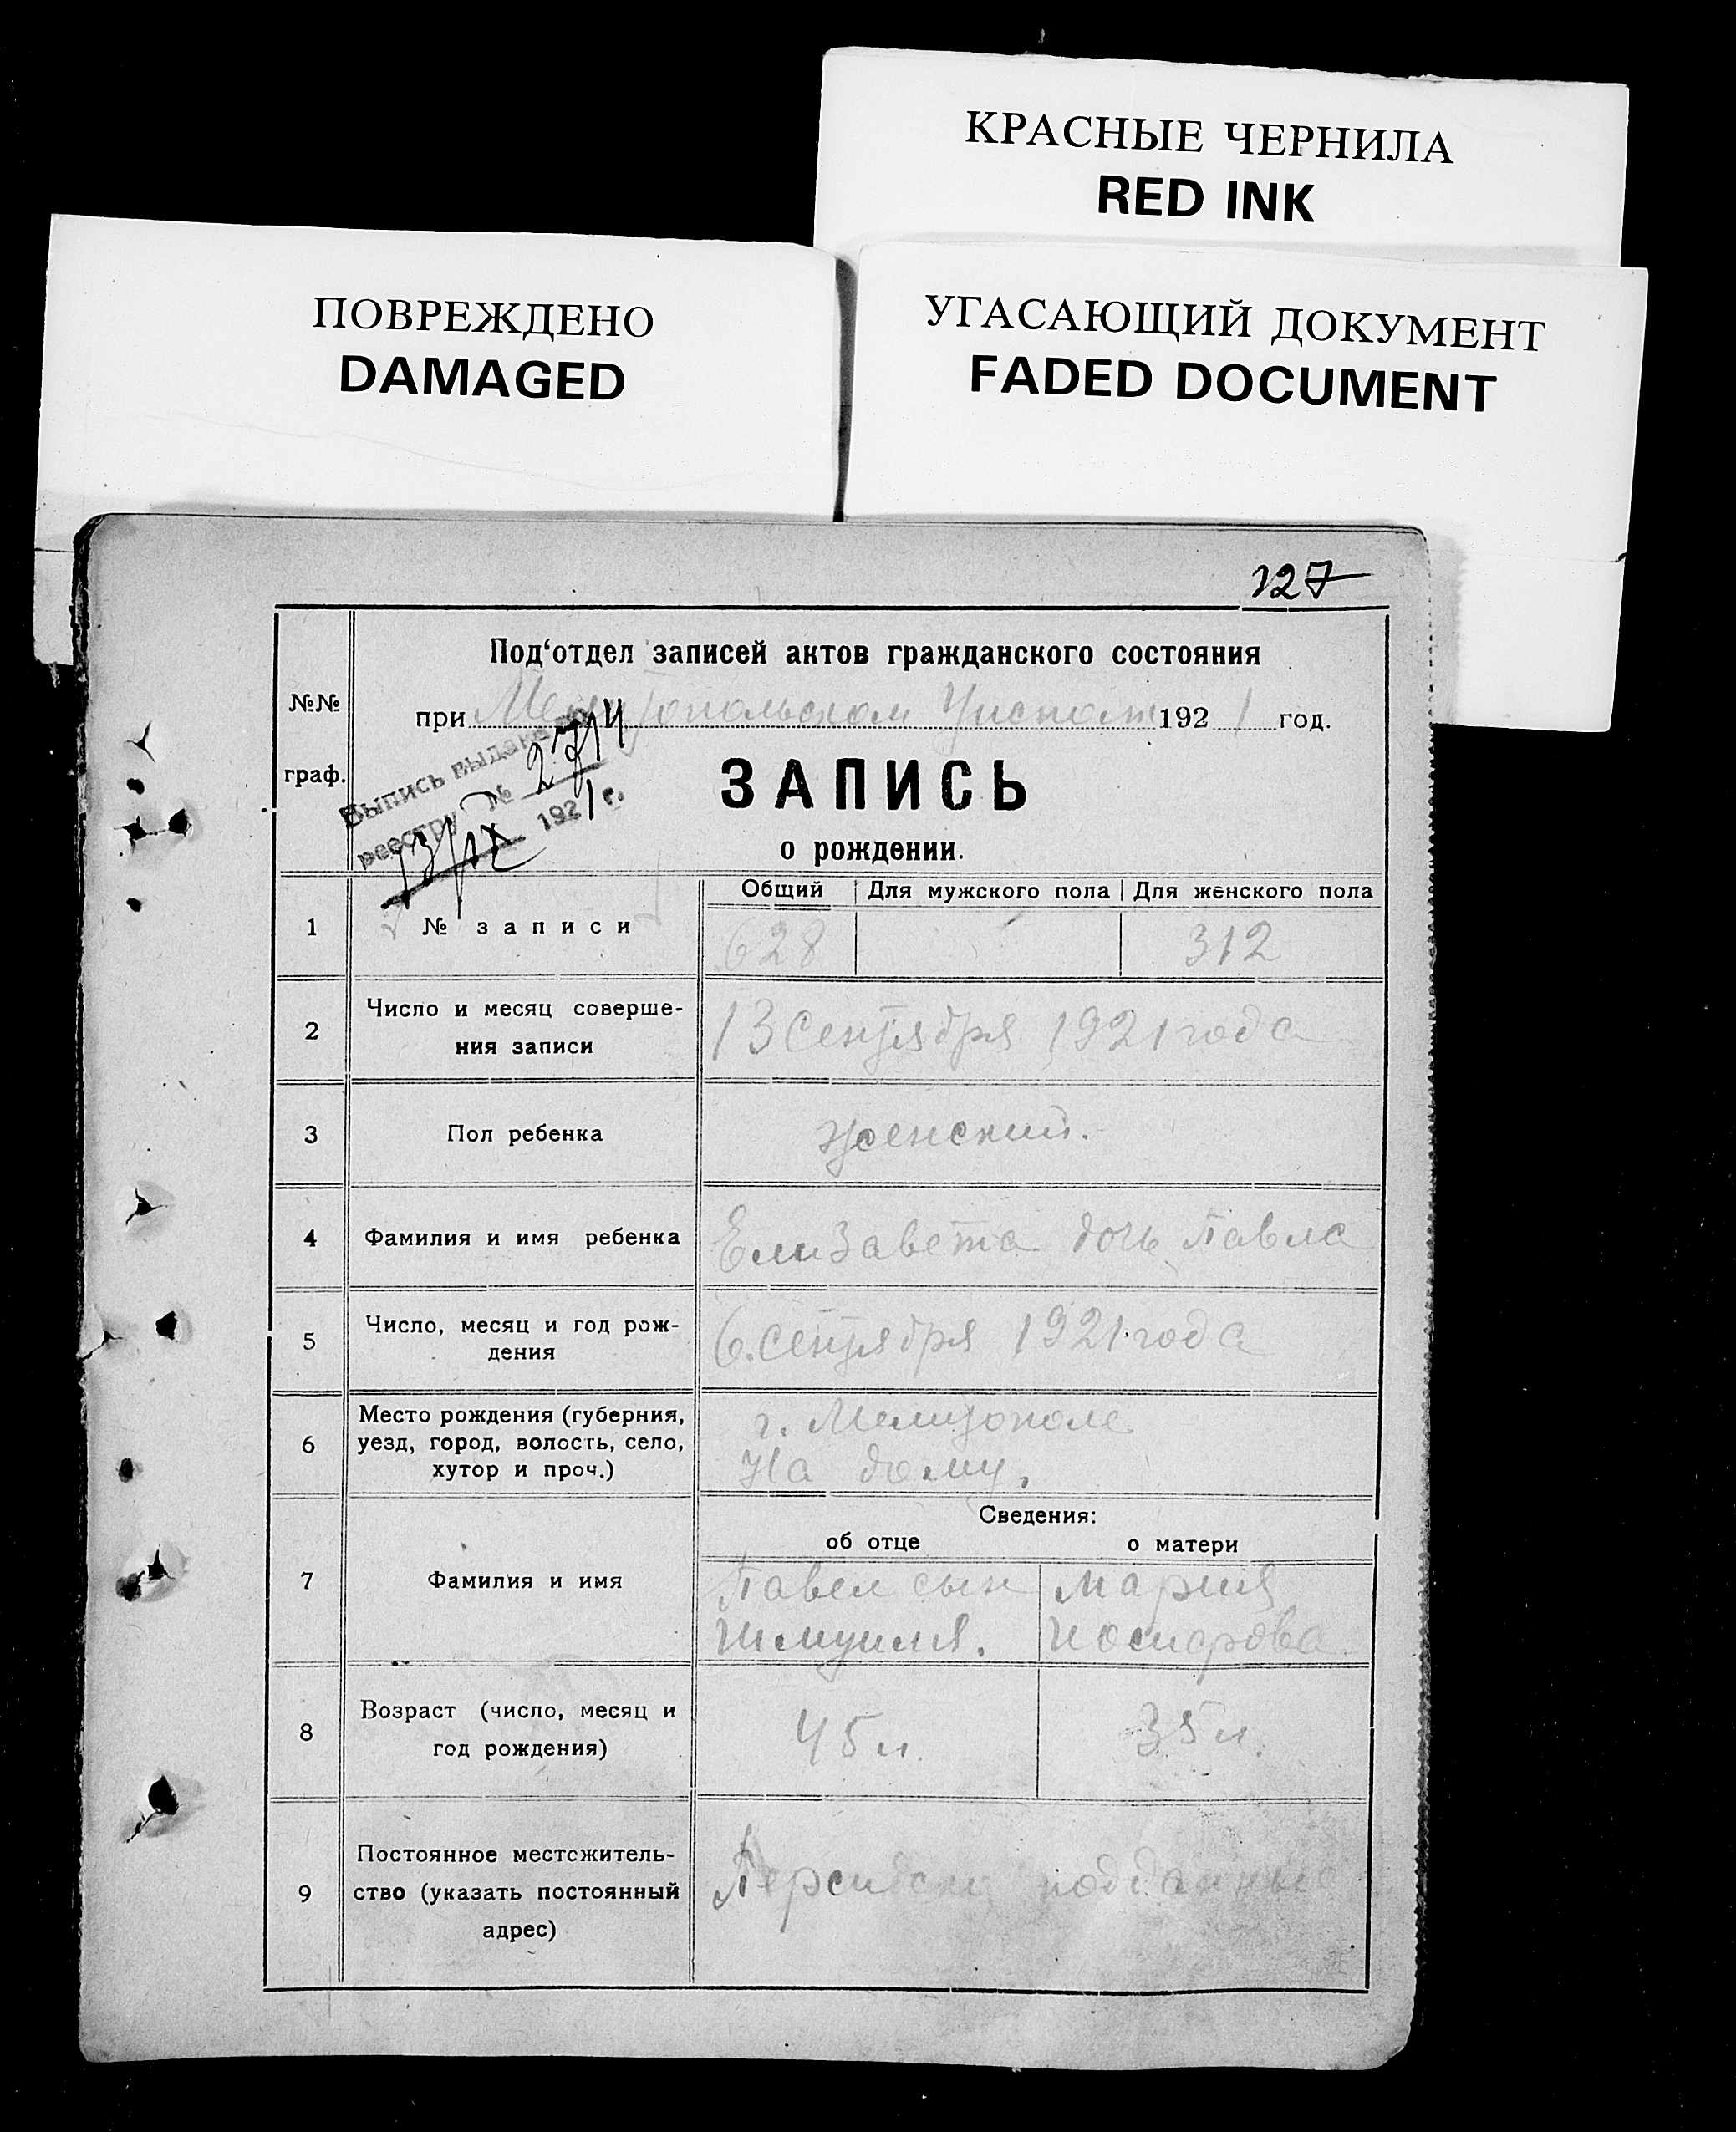 КРАСНЫЕ ЧЕРНИЛА
RED INK
ПОВРЕЖДЕНО
DAMAGED
УГАСАЮЩИЙ ДОКУМЕНТ
FADED DOCUMENT
127
Под‘отдел записей актов гражданского состояния
№№
граф.
при Мелитопольском 1921 год.
Выпись выдана
реестру №
1921 г.
ЗАПИСЬ
о рождении.
Общий Для мужского пола Для женского пола
1 № записи 628 312
2 Число и месяц соверше-
ния записи
13 Сентября 1921 года
3 Пол ребенка женский.
4 Фамилия и имя ребенка Елизавета дочь Павла
5 Число, месяц и год рож-
дения
6. Сентября 1921 года
6 Место рождения (губерния,
уезд, город, волость, село,
хутор и проч.)
г. Мелитополе
на дому.
Сведения:
об отце о матери
7 Фамилия и имя
Павел сын Мария
Шмуиля. Иосифова
8 Возраст (число, месяц и
год рождения)
45 л. 35 л.
9 Постоянное местожитель-
ство (указать постоянный
адрес)
Персидски подданные